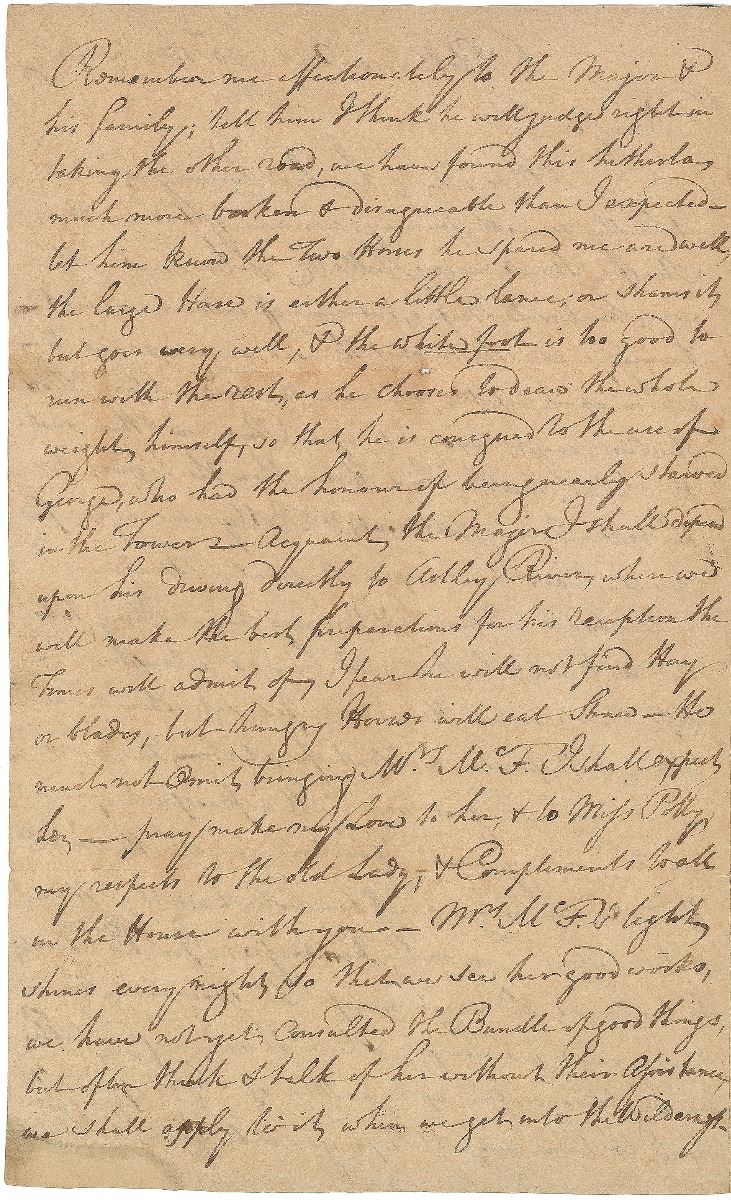 Remember me affectionately to the Major &
his family; tell him I think he will judge right in
taking the other road, we have found this hitherto
much more broken & disagreeable than I expected—
let him know the Two Horses he spared me are well,
the large Horse is either a little lame, or shams it,
but goes very well, & the white foot is too good to
run with the rest, as he chooses to draw the whole
weight himself, so that he is consigned to the use of
George, who had the honour of being nearly starved
in the Tower— Acquaint the Major I shall depend
upon his driving directly to Ashley River, where we
will make the best preparations for his reception the
Times will admit of, I fear he will not find Hay
or blades, but hungry Horses will eat Straw— He
must not Omit bringing Mrs. McF. I shall expect
her,— pray make my Love to her, & to Miss Polly,
my respects to the old Lady, & Compliments to all
in the House with you— Mrs. McF.'s light
shines every night, so that we see her good works,
we have not yet consulted the Bundle of good things,
but often think & talk of her without their Assistance,
we shall apply to it, when we get into the Wilderness—